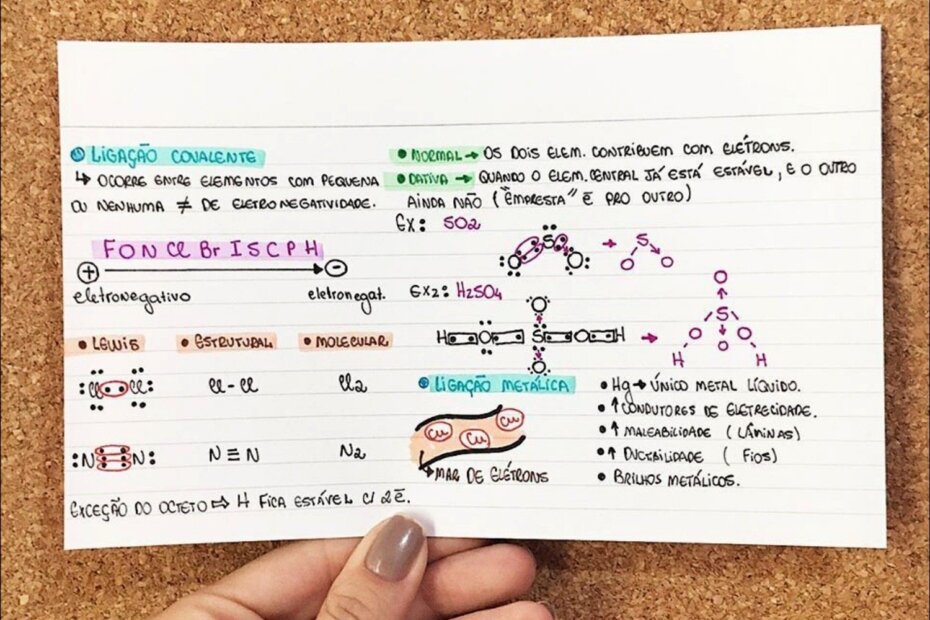 LIGAÇÃO COVALENTE
↳ OCORRE ENTRE ELEMENTOS COM PEQUENA
OU NENHUMA ≠ DE ELETRONEGATIVIDADE.
F O N Cl Br I S C P H
+ → -
eletronegativo eletronegat.
• LEWIS • ESTRUTURAL • MOLECULAR
:Cl··Cl: Cl-Cl Cl2
:N N: N≡N N2
EXCEÇÃO DO OCTETO ⇨ H FICA ESTÁVEL C/ 2 ē.
• NORMAL → OS DOIS ELEM. CONTRIBUEM COM ELÉTRONS.
• DATIVA → QUANDO O ELEM. CENTRAL JÁ ESTÁ ESTÁVEL, E O OUTRO
AINDA NÃO ("EMPRESTA" ē PRO OUTRO)
EX: SO2
S → S
O O O O
EX2: H2SO4
O O
H O S O H → S
O O O O
H H
LIGAÇÃO METÁLICA
Cu Cu Cu
↳ MAR DE ELÉTRONS
• Hg → ÚNICO METAL LÍQUIDO.
• ↑ CONDUTORES DE ELETRECIDADE.
• ↑ MALEABILIDADE (LÂMINAS)
• ↑ DUCTAILIDADE (FIOS)
• BRILHOS METÁLICOS.